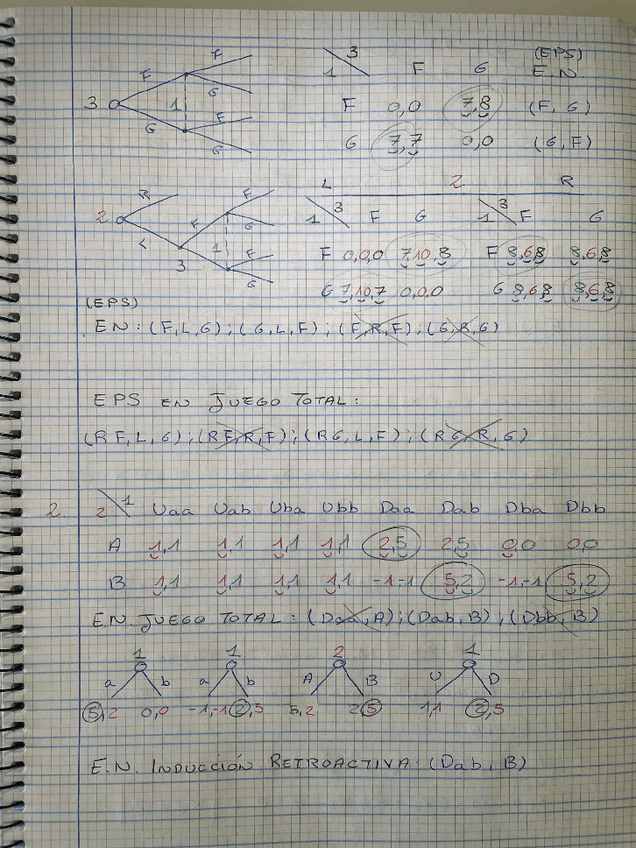 3 F G F G F G 1
3 1 F G (EPS) E.N
F 0,0 7,8 (F, G)
G 7,7 0,0 (G,F)
L 2 R
2 R L 3 F G 1 F G F G
3 1 F G 3 1 F G
F 0,0,0 7,10,8 F 8,6,8 8,6,8
G 7,10,7 0,0,0 G 8,6,8 8,6,8
(EPS)
EN: (F,L,G); (G,L,F); (F,R,F); (G,R,G)
EPS EN JUEGO TOTAL:
(RF,L,G); (RF,R,F); (RG,L,F); (RG,R,G)
2. 2 1 Uaa Uab Uba Ubb Daa Dab Dba Dbb
A 1,1 1,1 1,1 1,1 2,5 2,5 0,0 0,0
B 1,1 1,1 1,1 1,1 -1,-1 5,2 -1,-1 5,2
E.N. JUEGO TOTAL: (Daa,A); (Dab,B); (Dbb,B)
1 1 2 1
a b a b A B U D
5,2 0,0 -1,-1 2,5 5,2 2,5 1,1 2,5
E.N. INDUCCIÓN RETROACTIVA: (Dab, B)